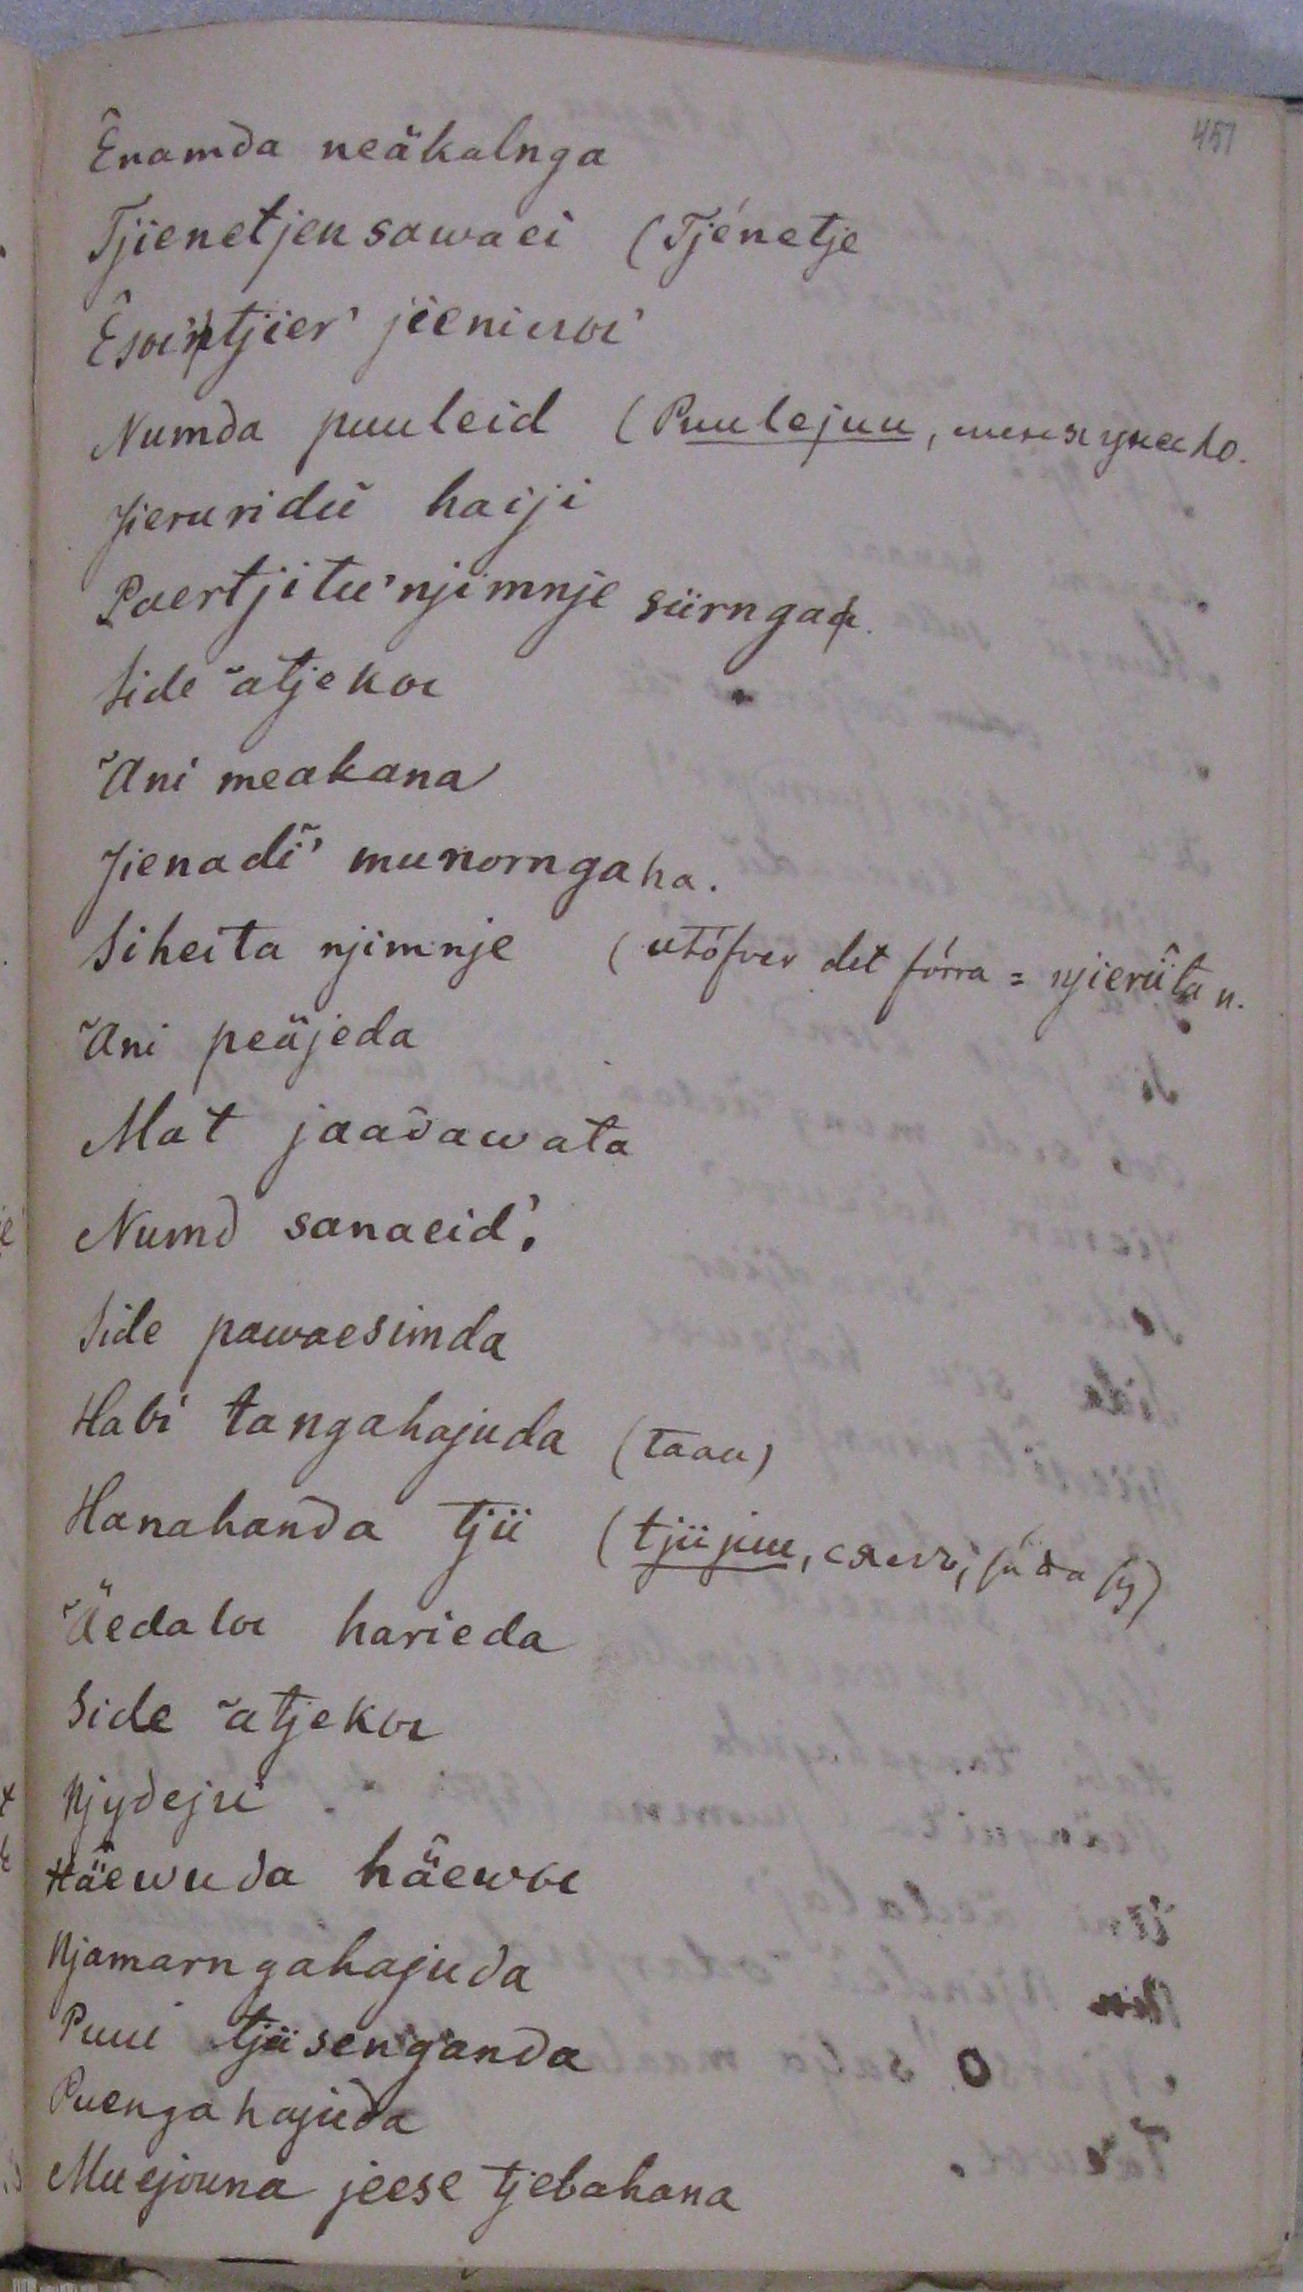 457
Ênamδa neäkalnga
Tjienetjensawaei (Tjénetje
Numδa puuleid (Puulejuu,
Jieruridū haiji
Paertjitu'njimnje siirnga
Side ātjekoe
Āni meakana
Jienadī' munornga ha.
Siheita njimnje (utöfver det förra = njierūta n.
Āni peäjeda
Mat jaaδawata
Numδ sanaeid'.
Side pawaesimda
Habi tangahajuda (taau)
Hanahanδa tjii (tjiijuu,
Äedaloe harieda
Side ātjekoe
Njyδejuī.
Häewuδa häewoe
Njamarngahajuδa
Puui tjiisenganδa
Puengahajuδa
Muejouna jeese tjebahana